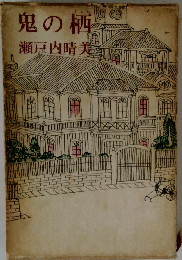 鬼の栖
瀬戸内晴美